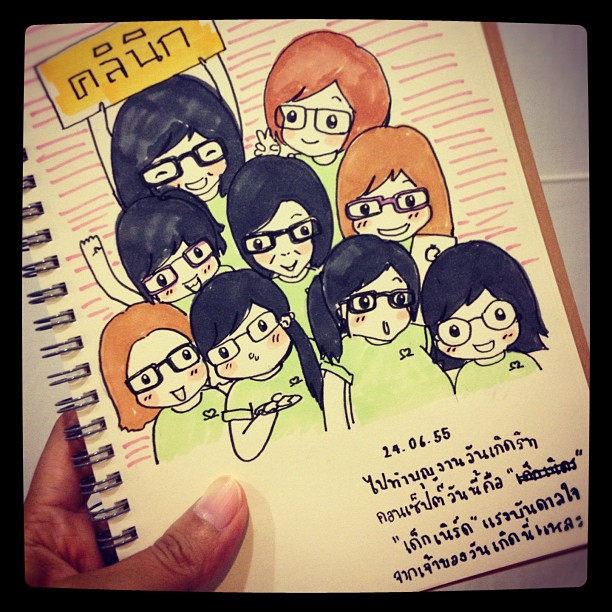 คลินิก
24.06.55
ไปทำบุญงานวันเกิดริท
คอนเซ็ปต์วันนี้คือ "
"เด็กเนิร์ด" แรงบันดาลใจ
จากเจ้าของวันเกิดนี่แหละ